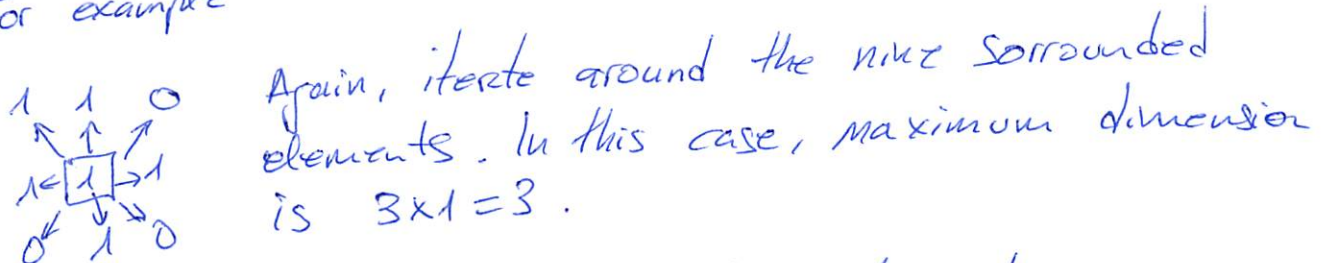 or example
1 1 0
Again, iterate around the nine sorrounded
1 1 1
elements. In this case, maximum dimension
0 1 0
is 3x1=3.